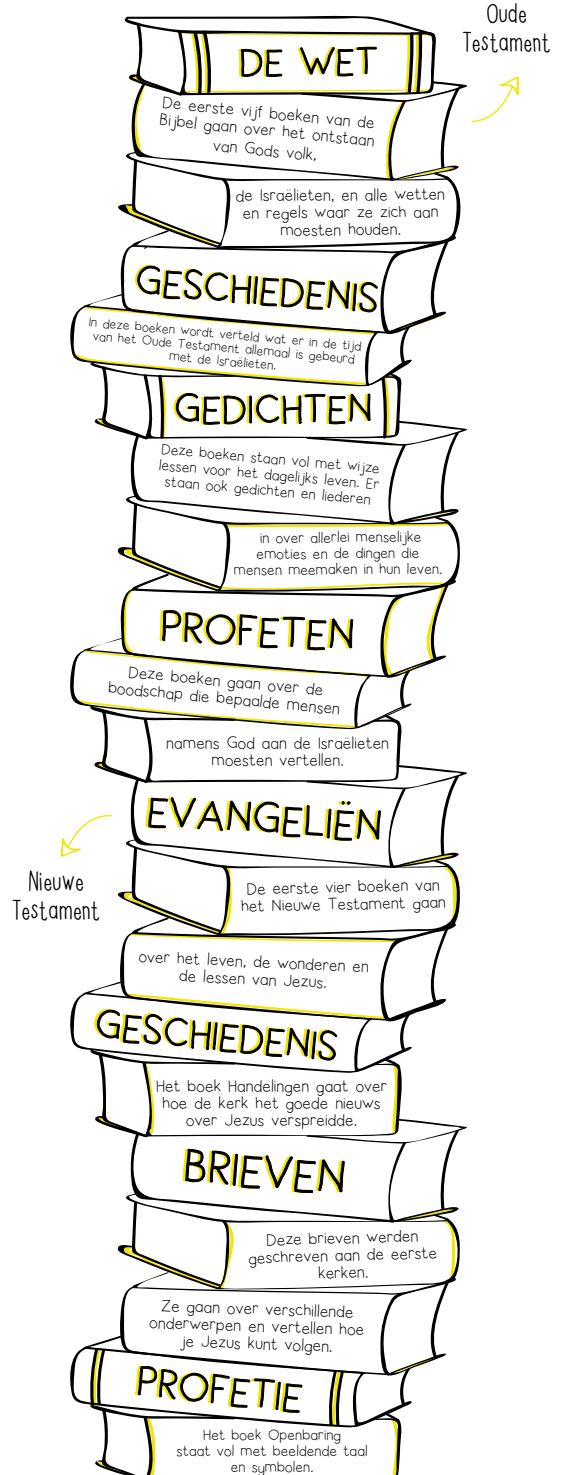 Oude
Testament
DE WET
De eerste vijf boeken van de
Bijbel gaan over het ontstaan
van Gods volk,
de Israëlieten, en alle wetten
en regels waar ze zich aan
moesten houden.
GESCHIEDENIS
In deze boeken wordt verteld wat er in de tijd
van het Oude Testament allemaal is gebeurd
met de Israëlieten.
GEDICHTEN
Deze boeken staan vol met wijze
lessen voor het dagelijks leven. Er
staan ook gedichten en liederen
in over allerlei menselijke
emoties en de dingen die
mensen meemaken in hun leven.
PROFETEN
Deze boeken gaan over de
boodschap die bepaalde mensen
namens God aan de Israëlieten
moesten vertellen.
EVANGELIËN
Nieuwe
Testament
De eerste vier boeken van
het Nieuwe Testament gaan
over het leven, de wonderen en
de lessen van Jezus.
GESCHIEDENIS
Het boek Handelingen gaat over
hoe de kerk het goede nieuws
over Jezus verspreidde.
BRIEVEN
Deze brieven werden
geschreven aan de eerste
kerken.
Ze gaan over verschillende
onderwerpen en vertellen hoe
je Jezus kunt volgen.
PROFETIE
Het boek Openbaring
staat vol met beeldende taal
en symbolen.